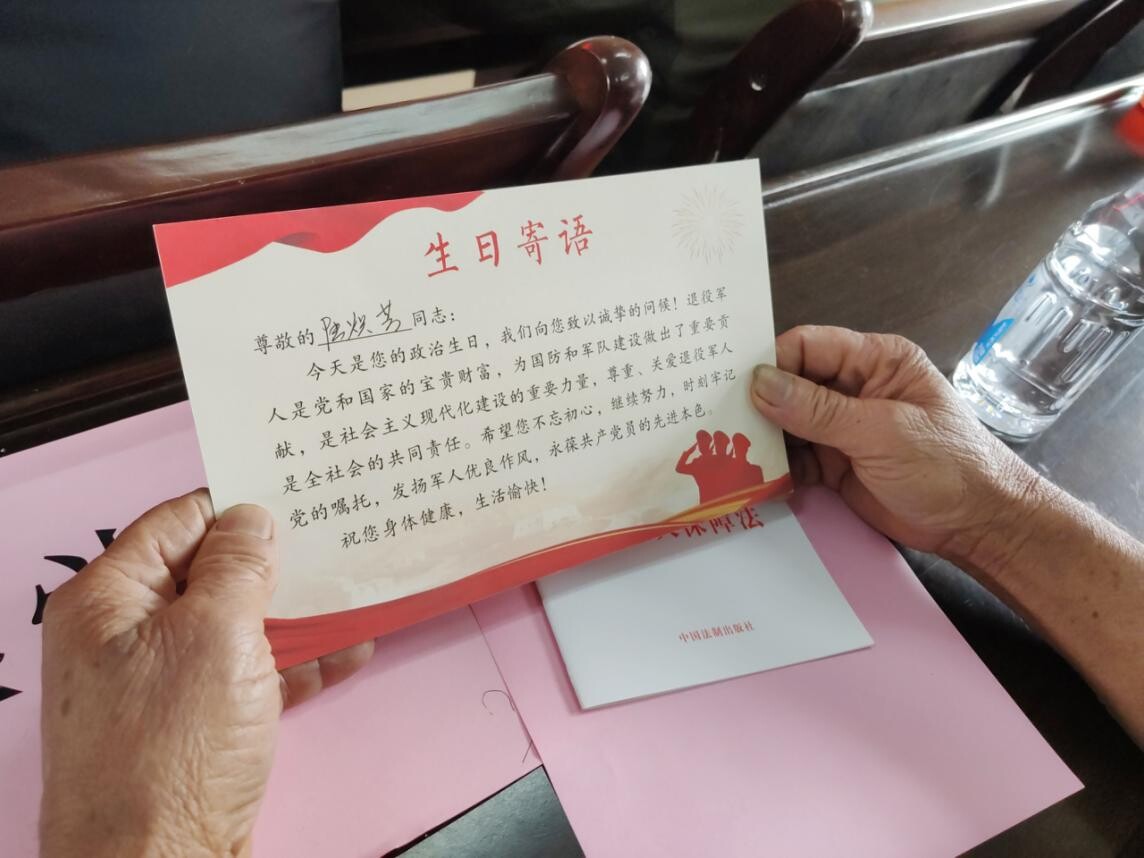 生日寄语
尊敬的陆焕芳同志：
今天是您的政治生日，我们向您致以诚挚的问候！退役军
人是党和国家的宝贵财富，为国防和军队建设做出了重要贡
献，是社会主义现代化建设的重要力量，尊重、关爱退役军人
是全社会的共同责任。希望您不忘初心，继续努力，时刻牢记
党的嘱托，发扬军人优良作风，永葆共产党员的先进本色。
祝您身体健康，生活愉快！
保障法
中国法制出版社